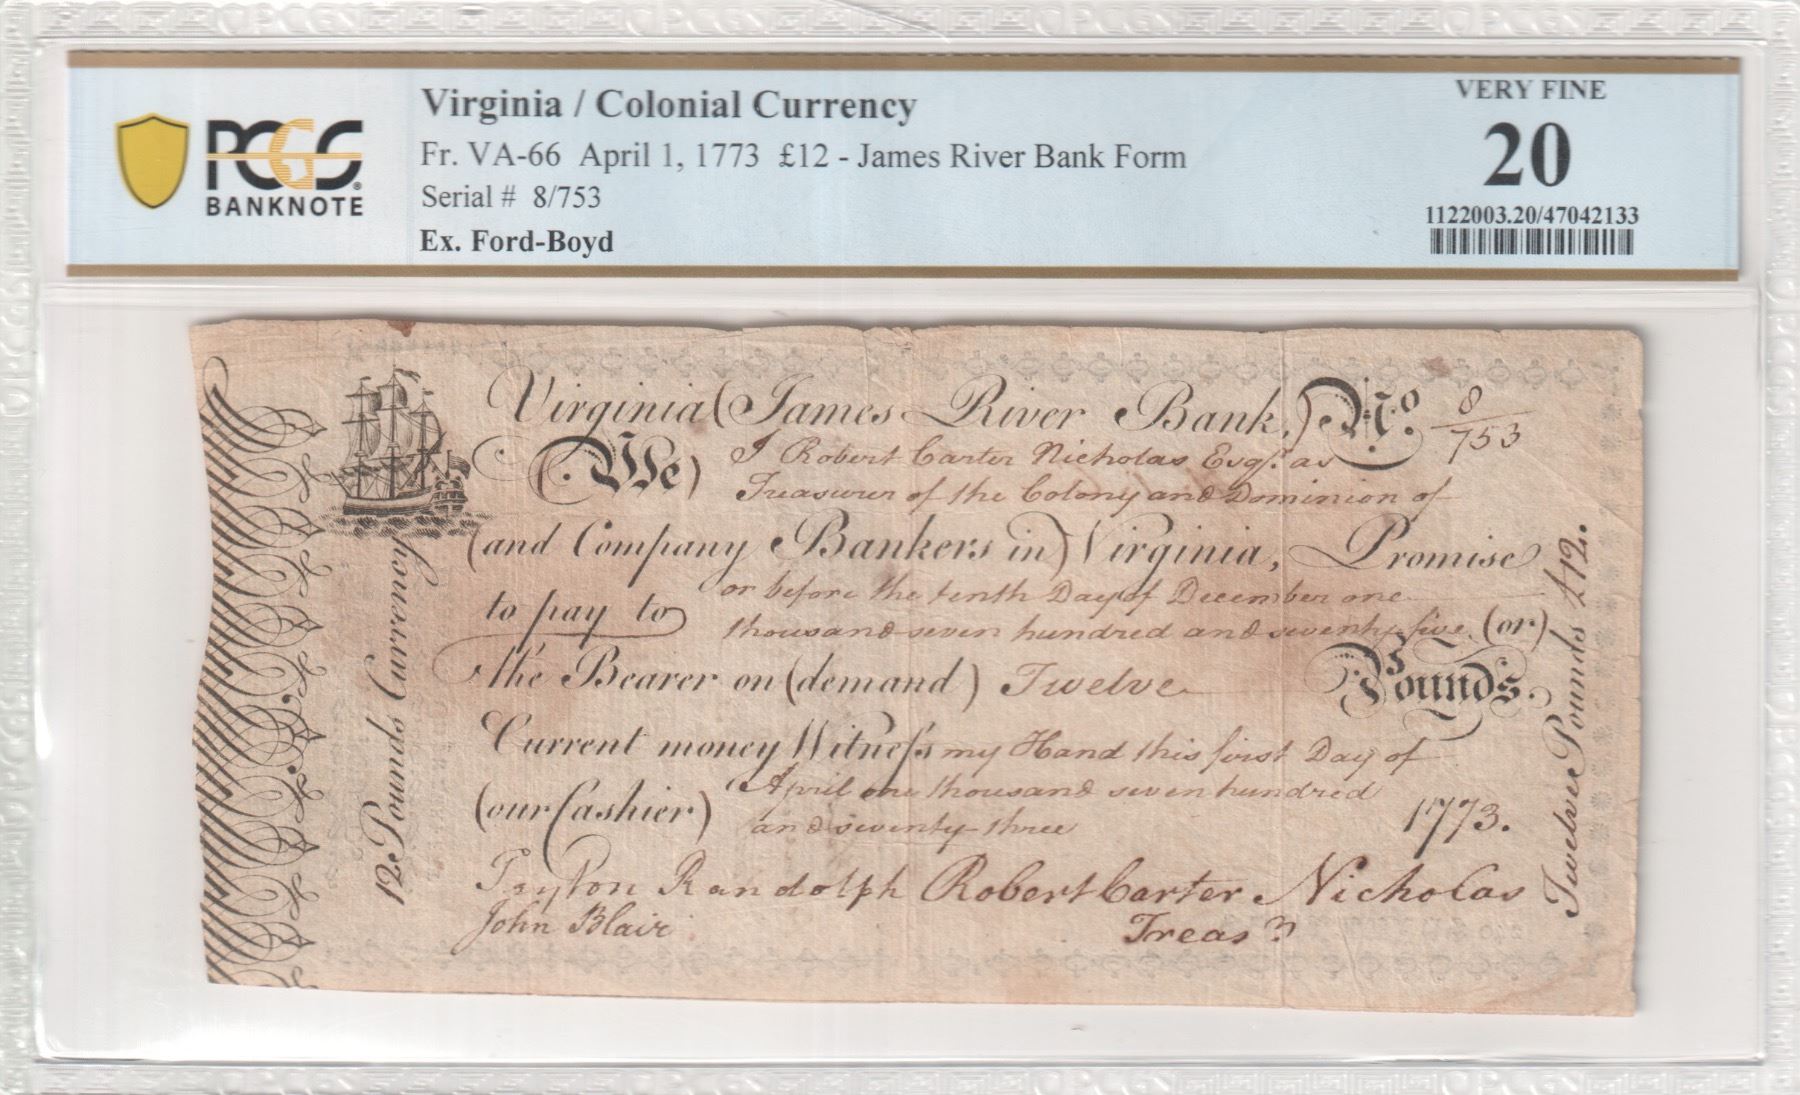 PCGS
BANKNOTE
Virginia / Colonial Currency
Fr. VA-66 April 1, 1773 £12 - James River Bank Form
Serial # 8/753
Ex. Ford-Boyd
VERY FINE
20
1122003.20/47042133
Virginia (James River Bank,) No. 8/753
(We) I Robert Carter Nicholas Esqr. as
Treasurer of the Colony and Dominion of
(and Company Bankers in) Virginia, Promise
to pay to or before the tenth Day of December one
thousand seven hundred and seventy five (or)
the Bearer on (demand) Twelve Pounds.
Current money Witneſs my Hand this first Day of
(our Cashier) April one thousand seven hundred
and seventy three 1773.
Peyton Randolph Robert Carter Nicholas
John Blair Treasr
12 Pounds Currency
Twelve Pounds £12.